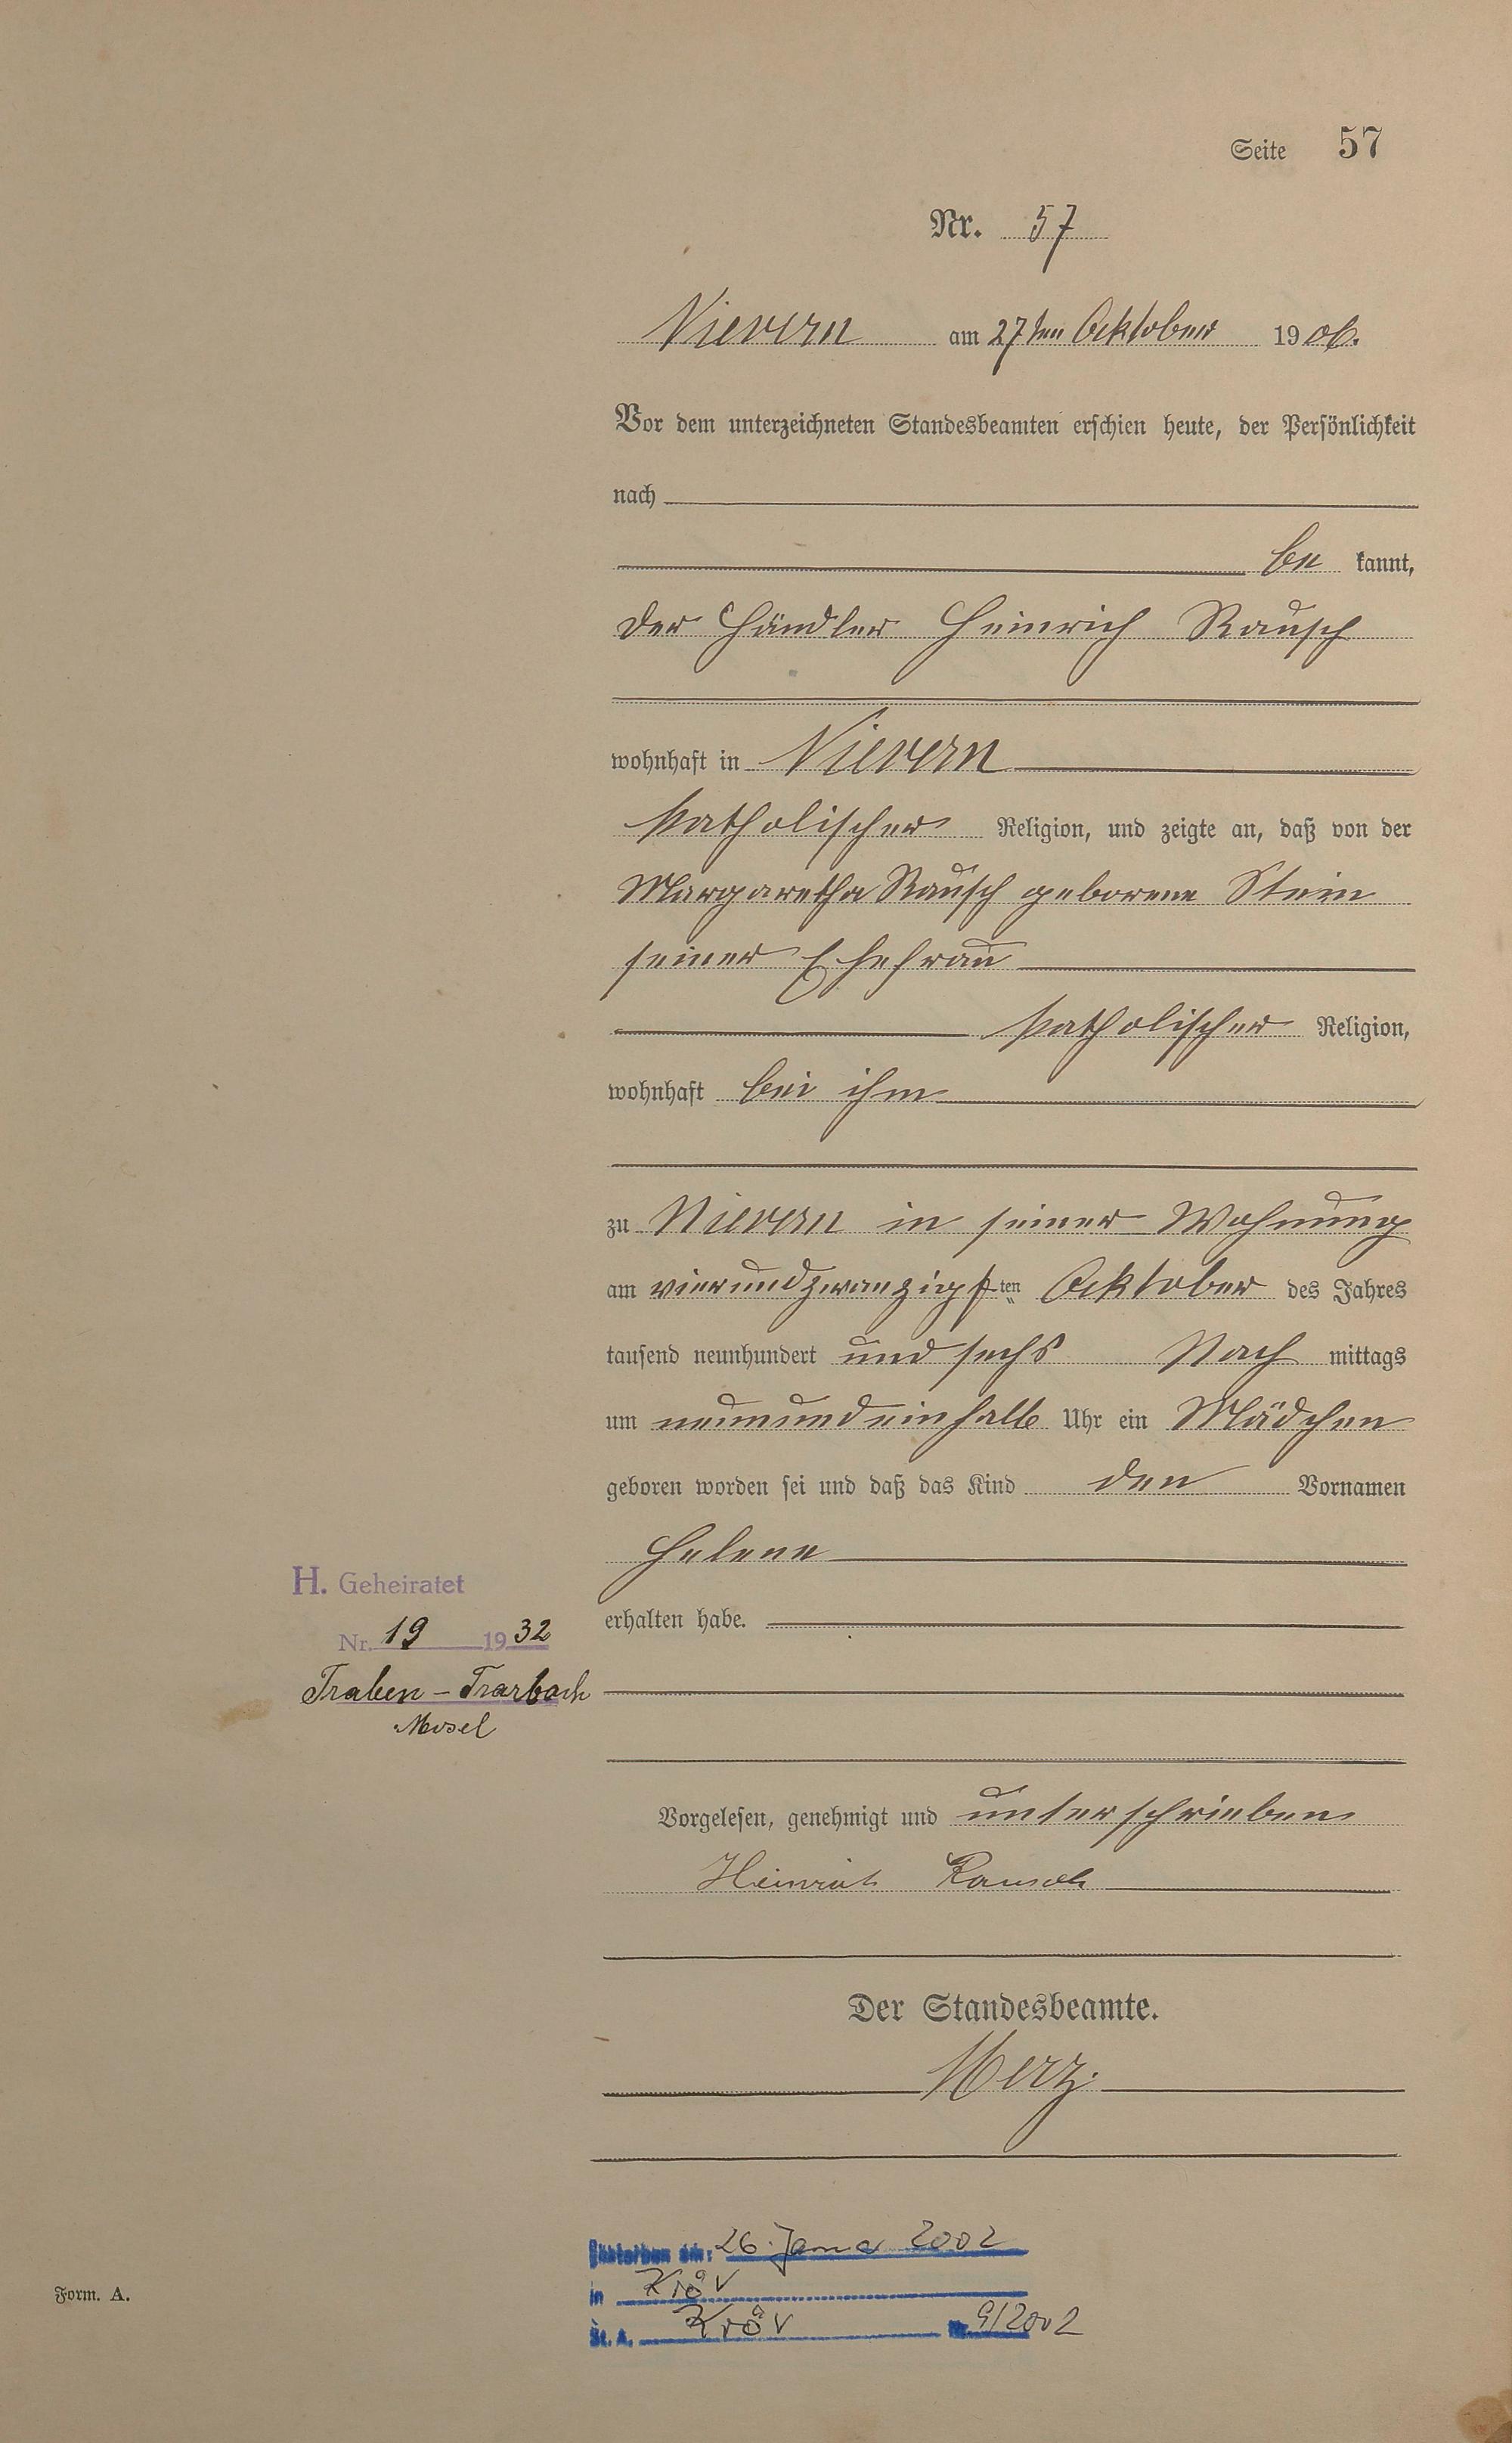 Seite 57
Nr. 57
Nievern am 27ten Oktober 1906.
Vor dem unterzeichneten Standesbeamten erschien heute, der Persönlichkeit
nach
be kannt,
der Händler Heinrich Rausch
wohnhaft in Nievern
katholischer Religion, und zeigte an, daß von der
Margaretha Rausch geborene Stein
seiner Ehefrau
katholischer Religion,
wohnhaft bei ihm
zu Nievern in seiner Wohnung
am vierundzwanzigsten Oktober des Jahres
tausend neunhundert und sechs Nach mittags
um neunundeinhalb Uhr ein Mädchen
geboren worden sei und daß das Kind den Vornamen
Helene
erhalten habe.
H. Geheiratet
Nr. 19 1932
Traben-Trarbach
Mosel
Vorgelesen, genehmigt und unterschrieben
Heinrich Rausch
Der Standesbeamte.
Merz.
Gestorben am: 26. Januar 2002
in Kröv
St. A. Kröv Nr. 9/2002
Form. A.